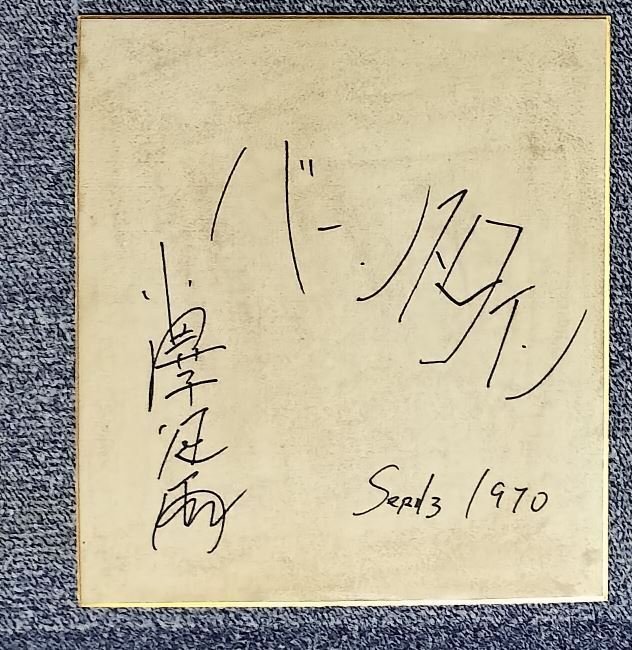 バーンスタイン
小澤征爾
Sept 3 1970